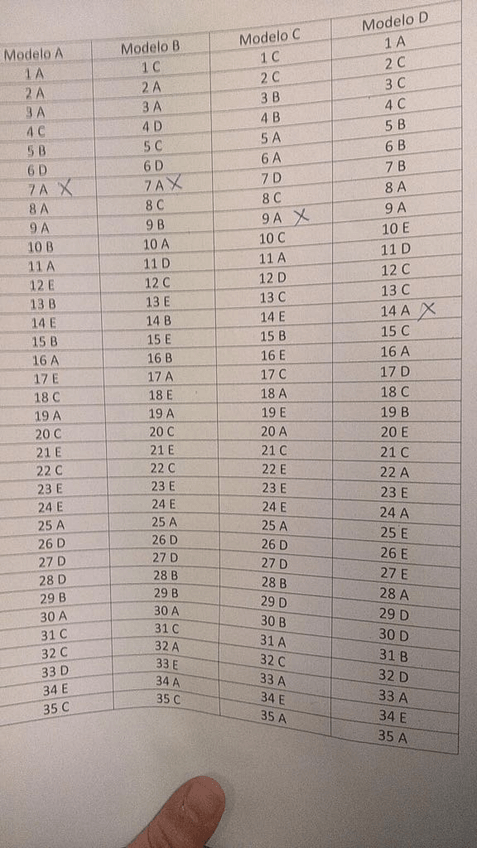 Modelo A Modelo B Modelo C Modelo D
1 A 1 C 1 C 1 A
2 A 2 A 2 C 2 C
3 A 3 A 3 B 3 C
4 C 4 D 4 B 4 C
5 B 5 C 5 A 5 B
6 D 6 D 6 A 6 B
7 A X 7 A X 7 D 7 B
8 A 8 C 8 C 8 A
9 A 9 B 9 A X 9 A
10 B 10 A 10 C 10 E
11 A 11 D 11 A 11 D
12 E 12 C 12 D 12 C
13 B 13 E 13 C 13 C
14 E 14 B 14 E 14 A X
15 B 15 E 15 B 15 C
16 A 16 B 16 E 16 A
17 E 17 A 17 C 17 D
18 C 18 E 18 A 18 C
19 A 19 A 19 E 19 B
20 C 20 C 20 A 20 E
21 E 21 E 21 C 21 C
22 C 22 C 22 E 22 A
23 E 23 E 23 E 23 E
24 E 24 E 24 E 24 A
25 A 25 A 25 A 25 E
26 D 26 D 26 D 26 E
27 D 27 D 27 D 27 E
28 D 28 B 28 B 28 A
29 B 29 B 29 D 29 D
30 A 30 A 30 B 30 D
31 C 31 C 31 A 31 B
32 C 32 A 32 C 32 D
33 D 33 E 33 A 33 A
34 E 34 A 34 E 34 E
35 C 35 C 35 A 35 A